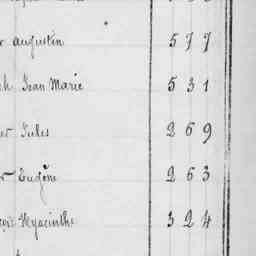 augustin 577
Jean Marie 531
Jules 269
Eugène 263
Hyacinthe 324